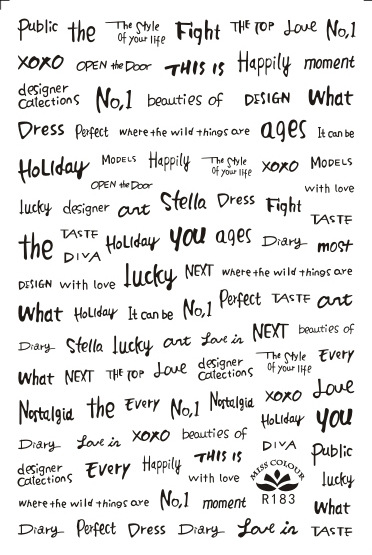 Public the The Style Of your life Fight THE TOP Love No,1
XOXO OPEN the Door THIS IS Happily moment
designer Calections No,1 beauties of DESIGN What
Dress Perfect where the wild things are ages It can be
HoLiday MODELS Happily The Style Of your life XOXO MODELS
OPEN the Door with love
lucky designer art Stella Dress Fight TASTE
the TASTE DIVA HoLiday you ages Diary most
DESIGN with love lucky NEXT where the wild things are
What HoLiday It can be No,1 Perfect TASTE art
Diary Stella lucky art Love in NEXT beauties of
What NEXT THE TOP Love designer Calections The Style Of your life Every
Nostalgia the Every No,1 Nostalgia XOXO Love
HoLiday you
Diary Love in XOXO beauties of DIVA Public
designer Calections Every Happily THIS IS with love MISS COLOUR lucky
where the wild things are No,1 moment R183 What
Diary Perfect Dress Diary Love in TASTE